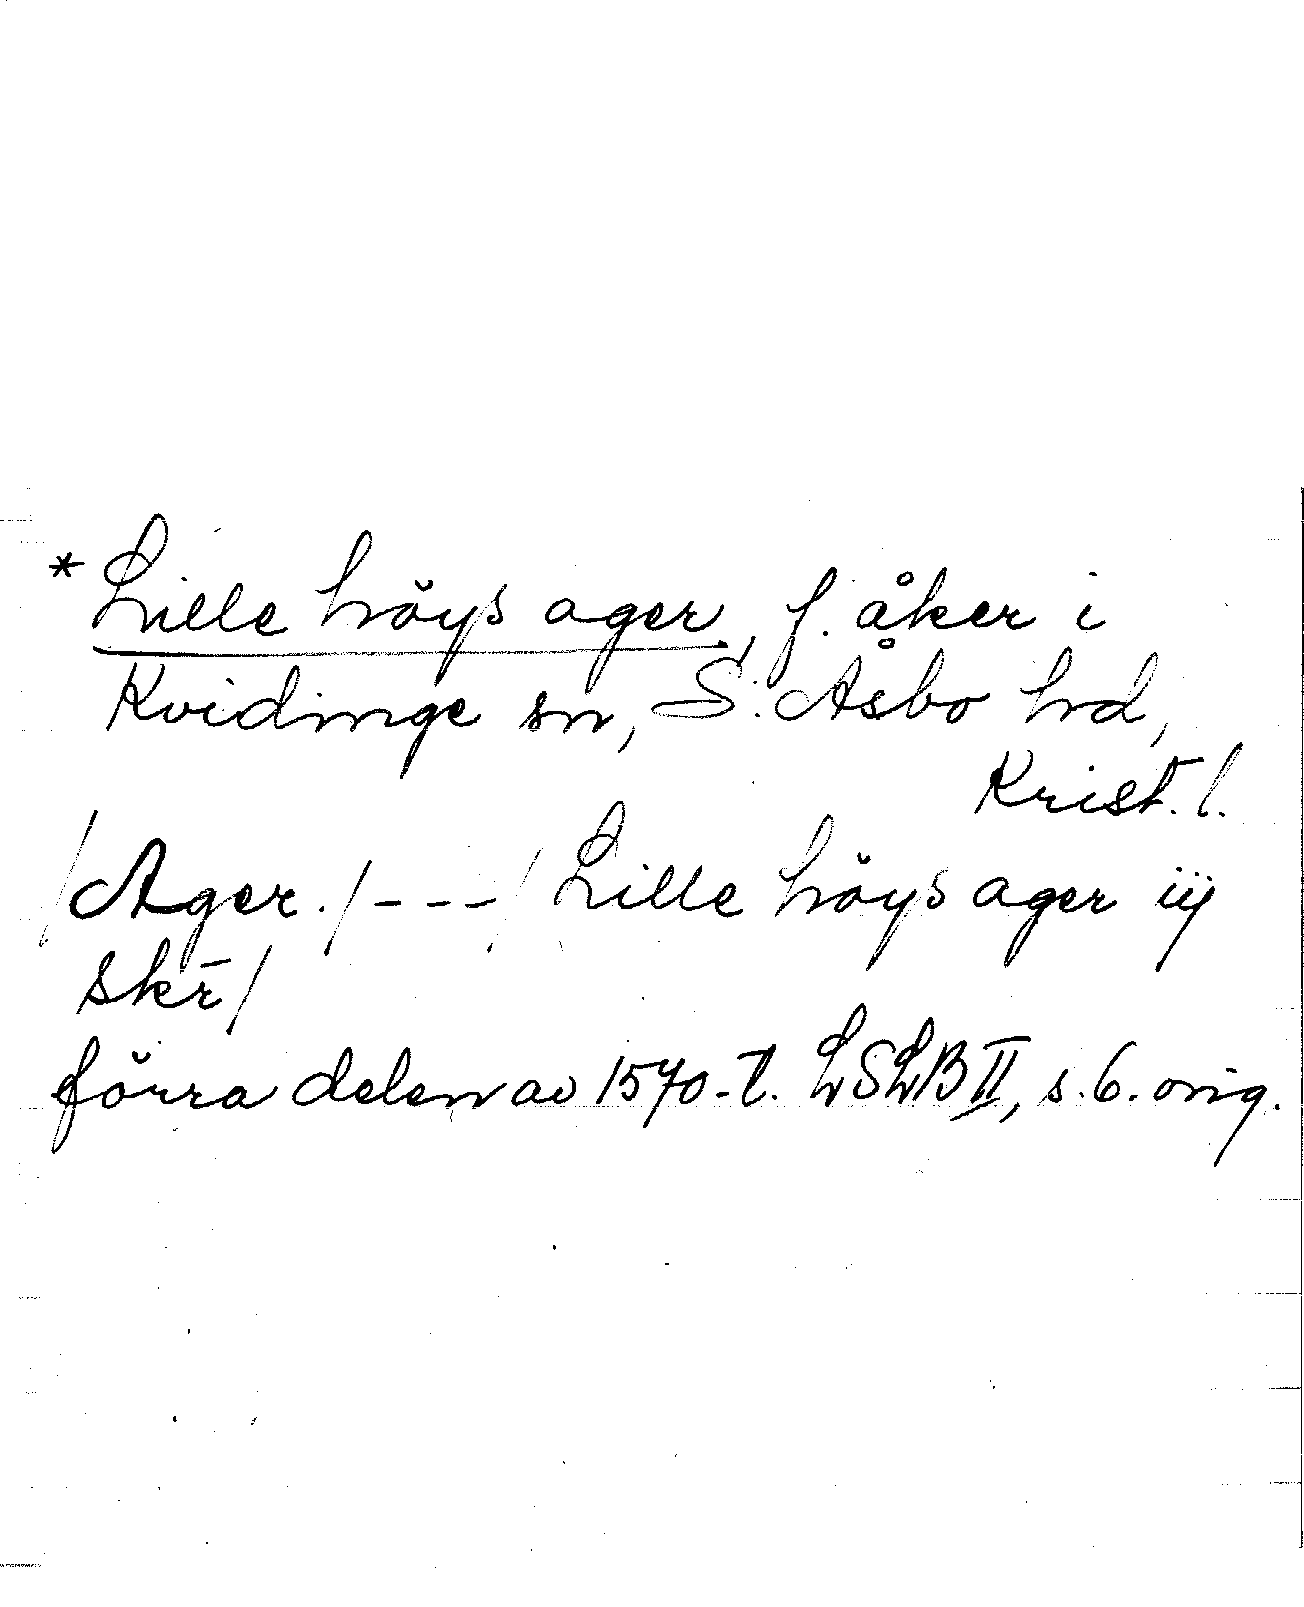 * Lille höys ager, f. åker i
Kvidinge sn, S. Åsbo hd,
Krist. l.
/Ager./---/Lille höys ager iij
skr̄/
förra delen av 1570-t. LSLB II, s. 6. orig.